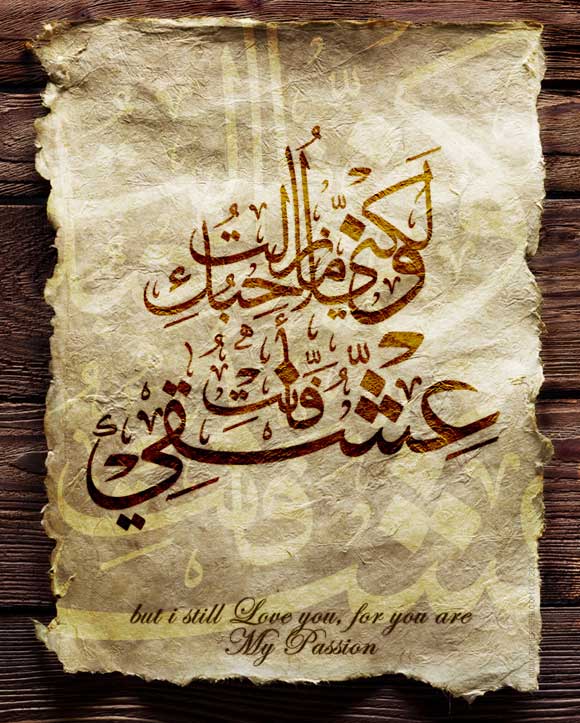 ولكنّي مازلتُ أُحِبُكِ
فَأنتِ عِشّقِي
but i still Love you, for you are
My Passion